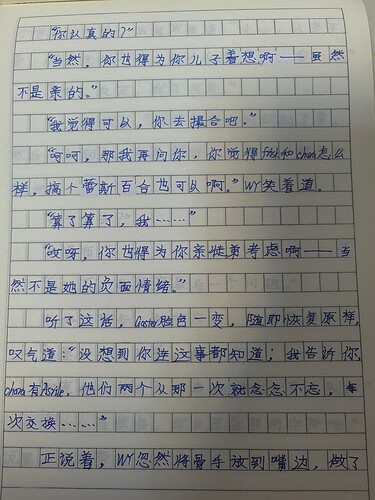 “你认真的？”
“当然，你也得为你儿子着想啊——虽然
不是亲的。”
“我觉得可以，你去撮合吧。”
“呵呵，那我再问你，你觉得frisk和chara怎么
样，搞个蕾斯百合也可以啊。”WY笑着道。
“算了算了，我……”
“哎呀，你也得为你亲徒弟考虑啊——当
然不是她的负面情绪。”
听了这话，Gaster脸色一变，随即恢复原样，
叹气道：“没想到你连这事都知道；我告诉你，
chara有Asriel，他们两个从那一次就念念不忘，每
次交换……”
正说着，WY忽然将骨手放到嘴边，做了